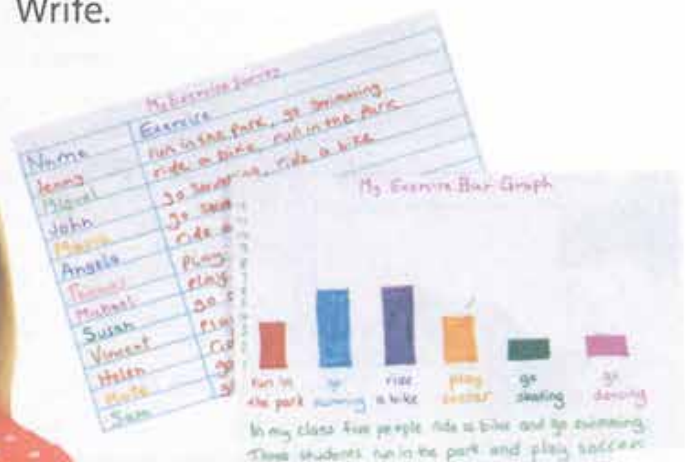 Write.
My Exercise Survey
Name Exercise
Jenny run in the park, go swimming
Miguel ride a bike, run in the park
John go swimming, ride a bike
Maria go
Angela ride a
Thomas play
Michael play
Susan go
Vincent
Helen
Mato go
Sam
My Exercise Bar Graph
run in go ride play go go
the park swimming a bike soccer skating dancing
In my class five people ride a bike and go swimming.
Three students run in the park and play soccer.